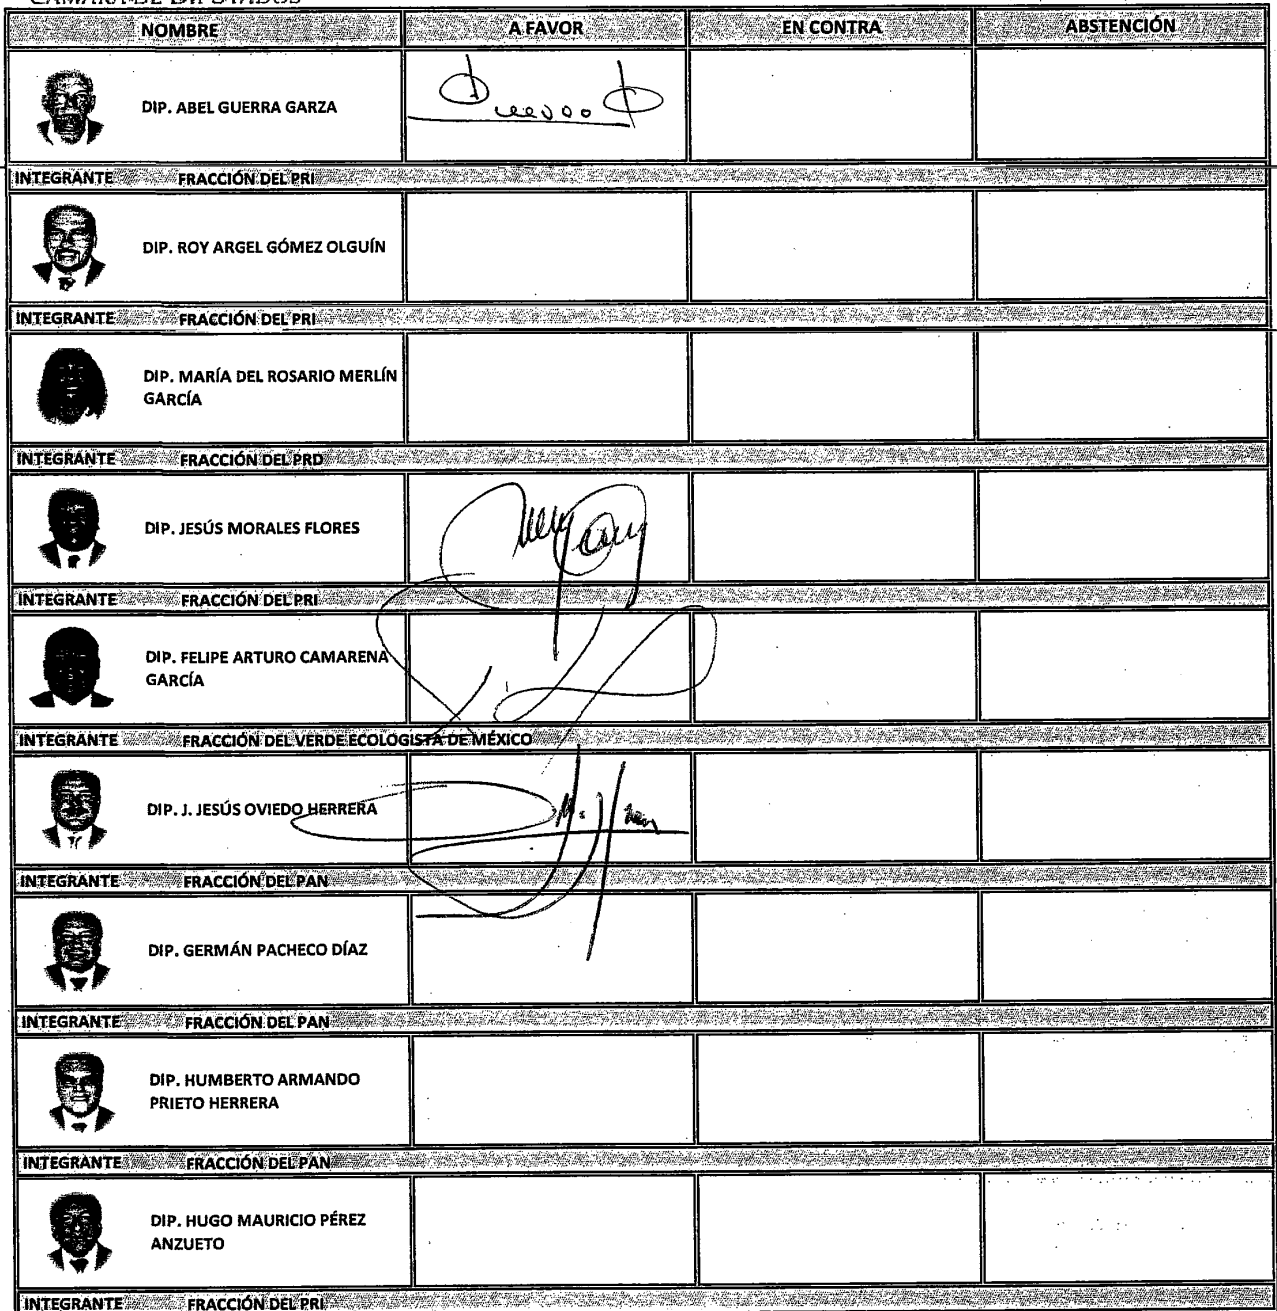 CÁMARA DE DIPUTADOS
NOMBRE A FAVOR EN CONTRA ABSTENCIÓN
DIP. ABEL GUERRA GARZA
INTEGRANTE FRACCIÓN DEL PRI
DIP. ROY ARGEL GÓMEZ OLGUÍN
INTEGRANTE FRACCIÓN DEL PRI
DIP. MARÍA DEL ROSARIO MERLÍN
GARCÍA
INTEGRANTE FRACCIÓN DEL PRD
DIP. JESÚS MORALES FLORES
INTEGRANTE FRACCIÓN DEL PRI
DIP. FELIPE ARTURO CAMARENA
GARCÍA
INTEGRANTE FRACCIÓN DEL VERDE ECOLOGISTA DE MÉXICO
DIP. J. JESÚS OVIEDO HERRERA
INTEGRANTE FRACCIÓN DEL PAN
DIP. GERMÁN PACHECO DÍAZ
INTEGRANTE FRACCIÓN DEL PAN
DIP. HUMBERTO ARMANDO
PRIETO HERRERA
INTEGRANTE FRACCIÓN DEL PAN
DIP. HUGO MAURICIO PÉREZ
ANZUETO
INTEGRANTE FRACCIÓN DEL PRI